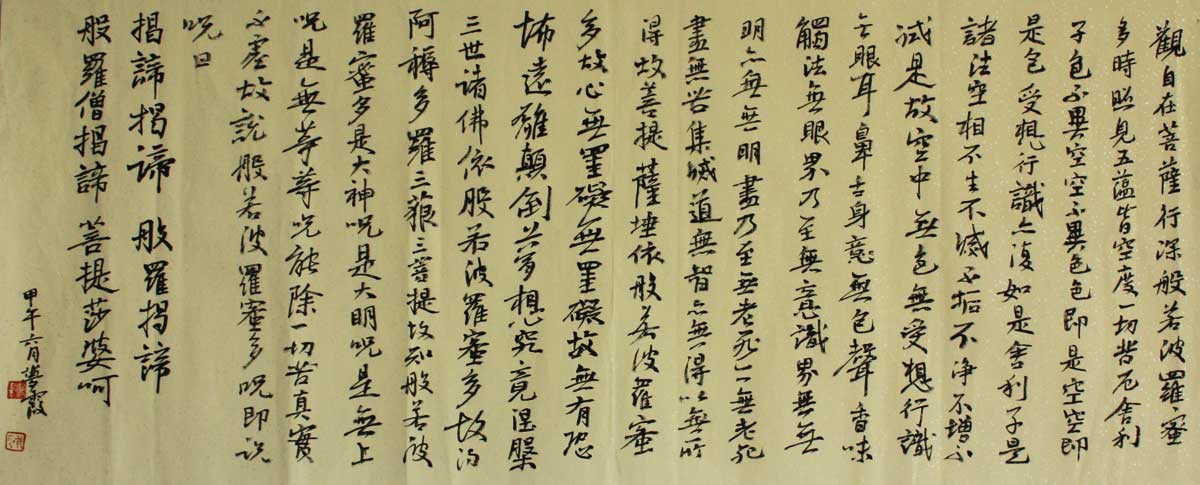 觀自在菩薩行深般若波羅蜜
多時照見五蘊皆空度一切苦厄舍利
子色不異空空不異色色即是空空即
是色受想行識亦復如是舍利子是
諸法空相不生不滅不垢不净不增不
減是故空中無色無受想行識
无眼耳鼻舌身意無色聲香味
觸法無眼界乃至無意識界無無
明亦無無明盡乃至無老死亦無老死
盡無苦集滅道無智亦無得以無所
得故菩提薩埵依般若波羅蜜
多故心無罣礙無罣礙故無有恐
怖遠離顛倒夢想究竟涅槃
三世諸佛依般若波羅蜜多故得
阿耨多羅三藐三菩提故知般若波
羅蜜多是大神呪是大明呪是無上
呪是無等等呪能除一切苦真實
不虛故說般若波羅蜜多呪即说
呪曰
揭諦揭諦 般羅揭諦
般羅僧揭諦 菩提莎婆呵
甲午六月 霞